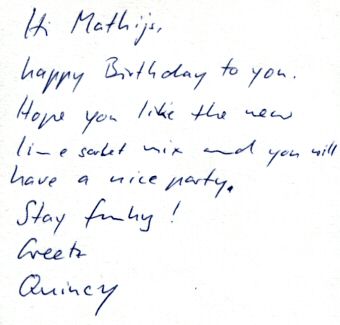 Hi Mathijs,
happy Birthday to you.
Hope you like the new
lime sorbet mix and you will
have a nice party.
Stay funky!
Greetz
Quincy